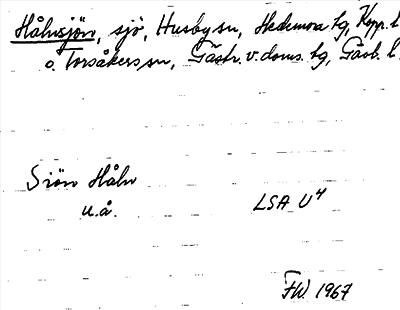 Hålnsjön, sjö, Husby sn, Hedemora tg, Kopp. l
o. Torsåkers sn, Gästr. v. doms. tg, Gävb. l.
Siön Håln
u.å. LSA U4
FW. 1967